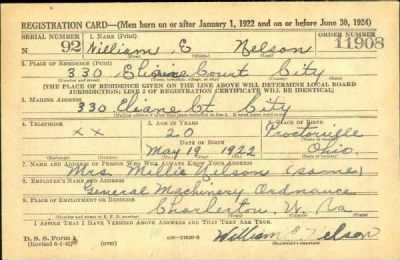 REGISTRATION CARD—(Men born on or after January 1, 1922 and on or before June 30, 1924)
SERIAL NUMBER 1. NAME (Print) ORDER NUMBER
N 92 William E Nelson 11908
2. PLACE OF RESIDENCE (Print)
330 Court City
(THE PLACE OF RESIDENCE GIVEN ON THE LINE ABOVE WILL DETERMINE LOCAL BOARD
JURISDICTION; LINE 2 OF REGISTRATION CERTIFICATE WILL BE IDENTICAL)
3. MAILING ADDRESS
330 Eliane Ct. City
4. TELEPHONE 5. AGE IN YEARS 6. PLACE OF BIRTH
x x 20 Proctorville
DATE OF BIRTH
May 19 1922 Ohio.
7. NAME AND ADDRESS OF PERSON WHO WILL ALWAYS KNOW YOUR ADDRESS
Mrs. Millie Nelson (same)
8. EMPLOYER'S NAME AND ADDRESS
General Machinery Ordnance
9. PLACE OF EMPLOYMENT OR BUSINESS
Charleston, W. Va
I AFFIRM THAT I HAVE VERIFIED ABOVE ANSWERS AND THAT THEY ARE TRUE.
D. S. S. Form 1
(over)
William E. Nelson